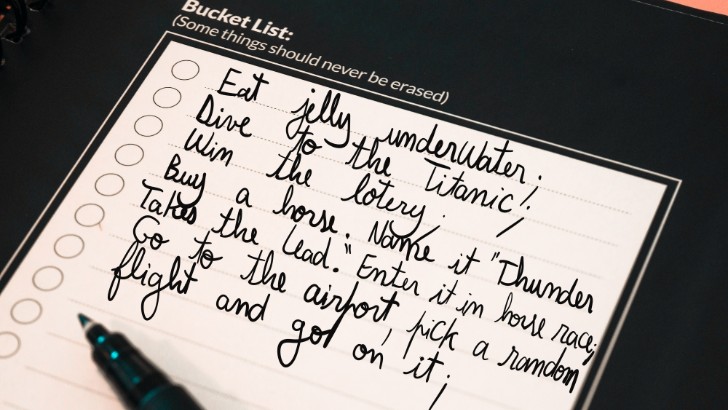 Bucket List:
(Some things should never be erased)
Eat jelly underWater.
Dive to the Titanic!
Win the lotery;
Buy a horse. Name it "Thunder
Takes the lead." Enter it in horse race;
Go to the airport, pick a random
flight and go on it;